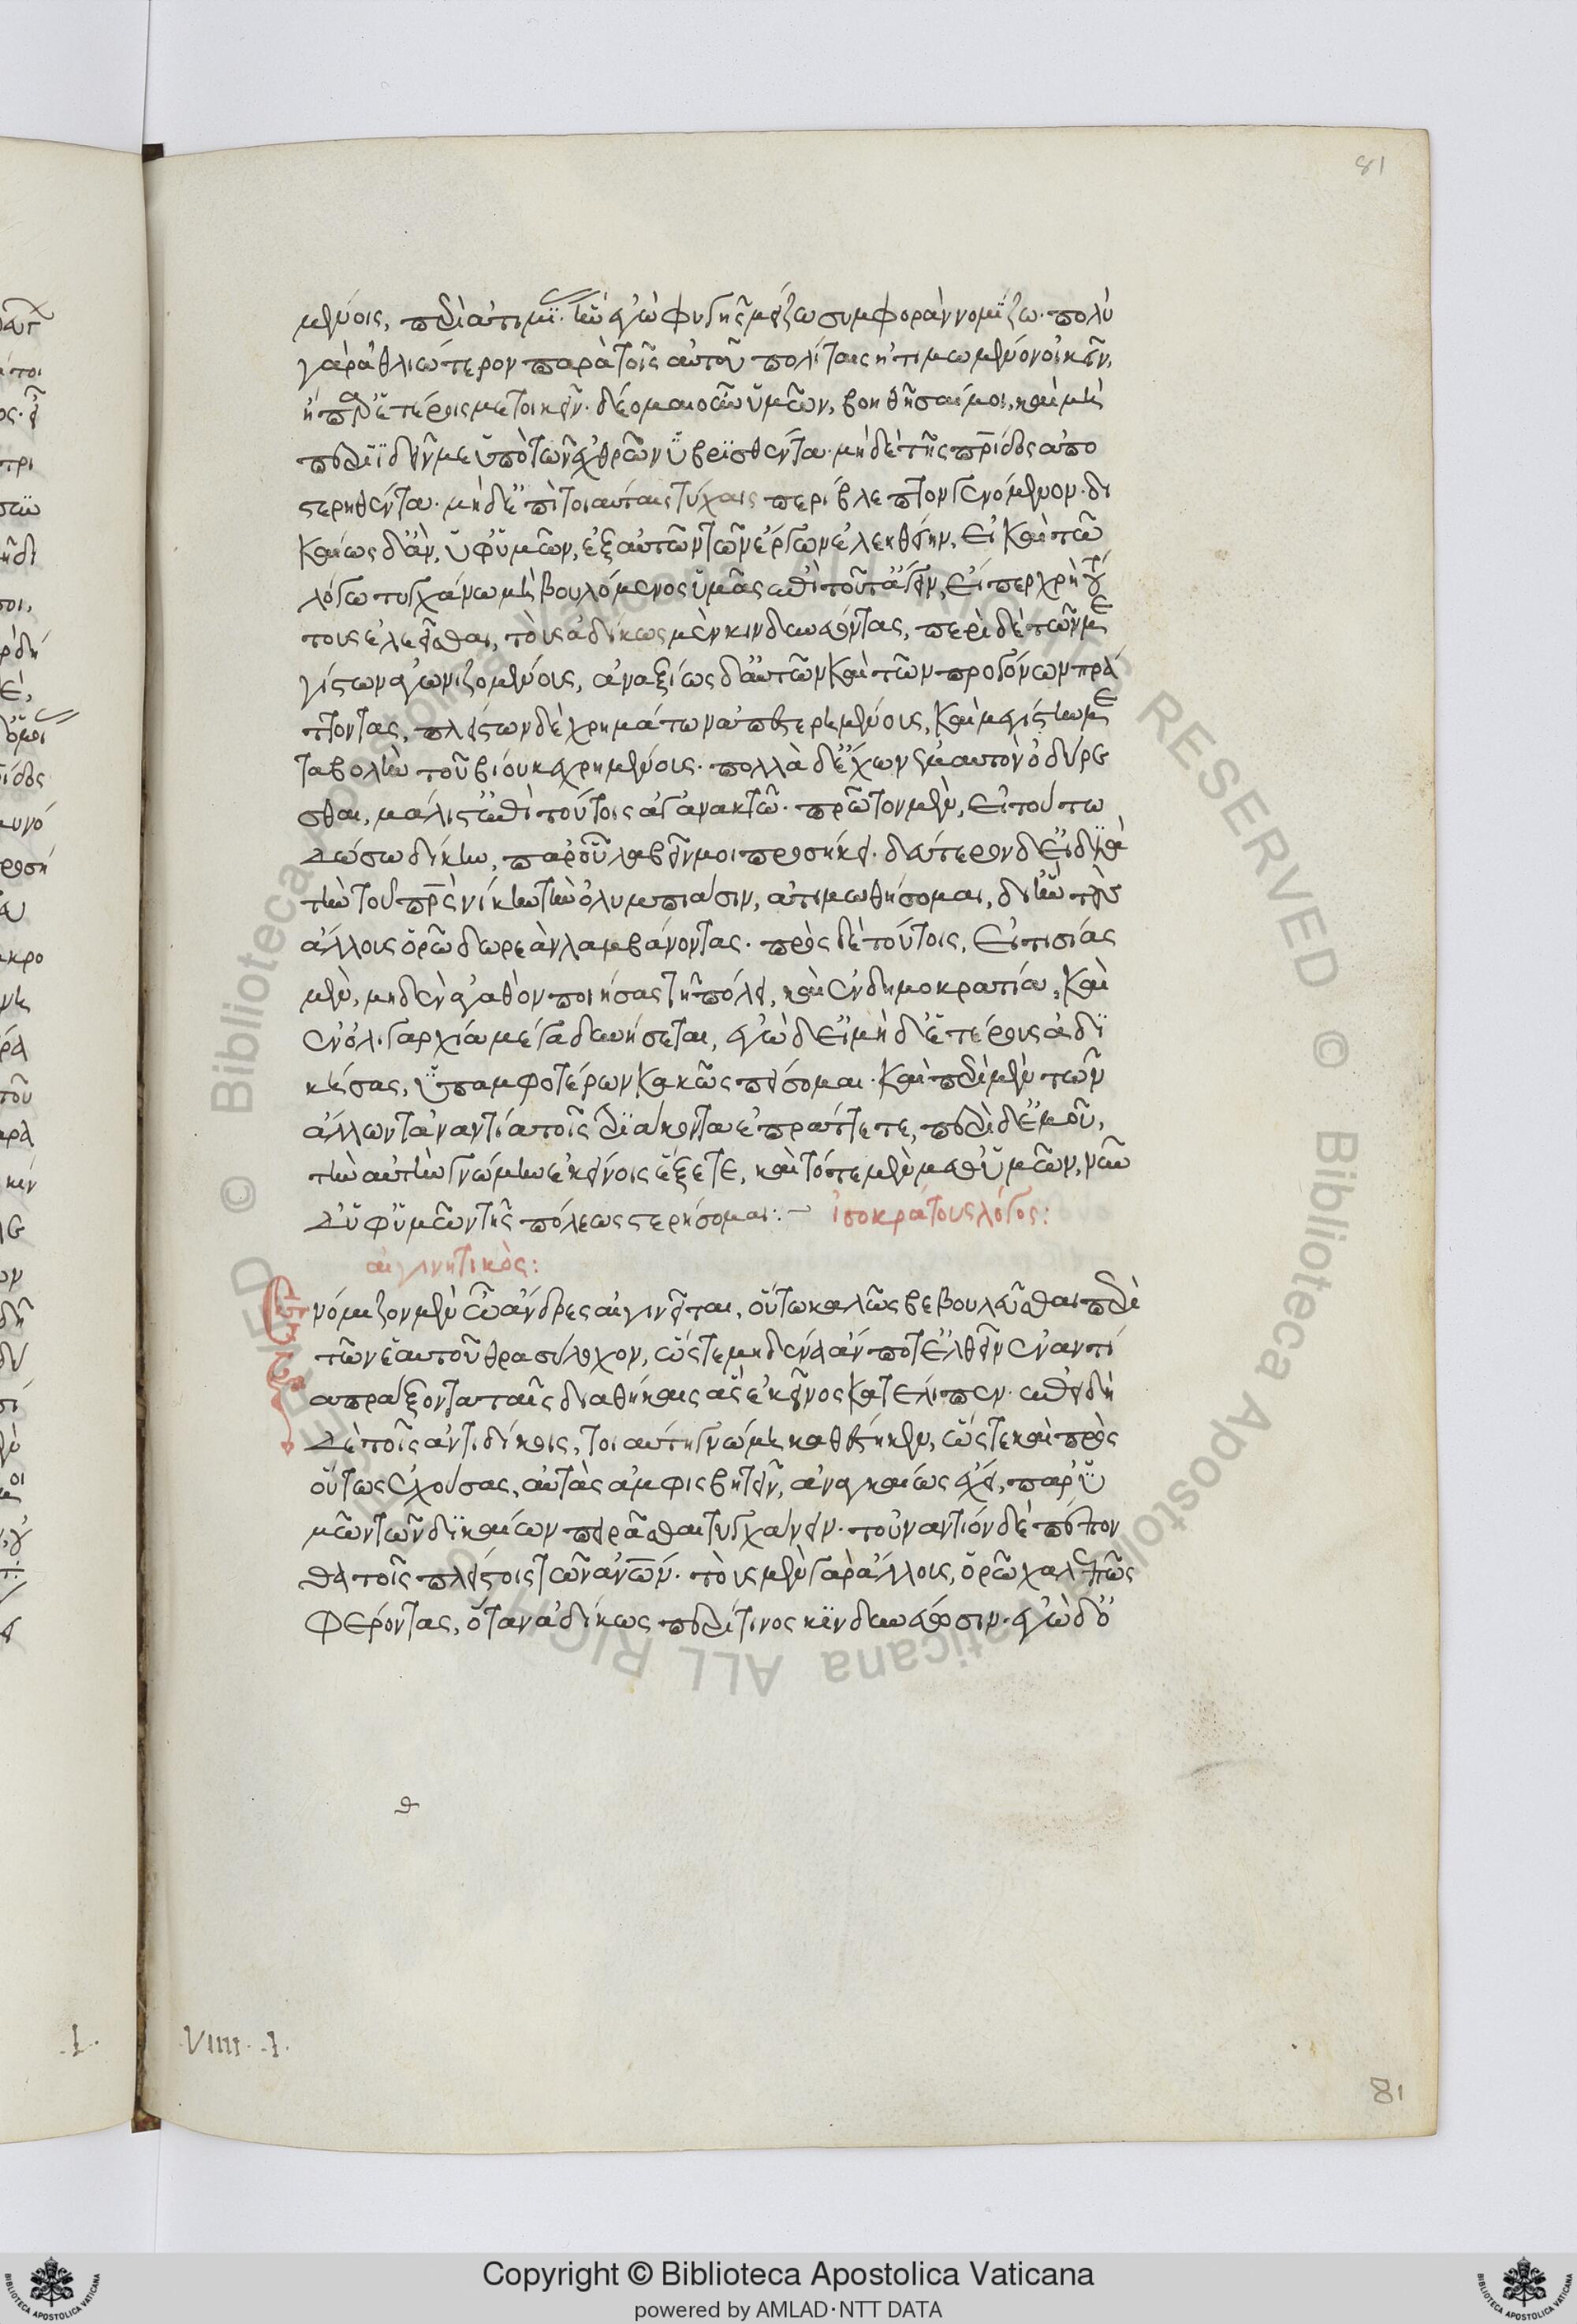 81
μένοις, περὶ ἀτιμί. ἣν ἐγὼ φυγῆς μείζω συμφορὰν νομίζω. πολὺ
γὰρ ἀθλιώτερον παρὰ τοῖς αὐτοῦ πολίταις ἠτιμωμένον οἰκεῖν,
ἢ παρ' ἑτέροις μετοικεῖν. δέομαι οὖν ὑμῶν, βοηθῆσαί μοι, καὶ μὴ
περιϊδεῖν με ὑπὸ τῶν ἐχθρῶν ὑβρισθέντα. μηδὲ τῆς πρίδος ἀπο
στερηθέντα. μηδ' ἐπὶ τοιαύταις τύχαις περίβλεπτον γενόμενον. δι
καίως δ' ἂν, ὑφ' ὑμῶν, ἐξ αὐτῶν τῶν ἔργων ἐλεηθείην, εἰ καὶ τῶ
λόγω τυγχάνω μὴ βουλόμενος ὑμᾶς ἐπὶ τοῦτ' ἄγειν, εἴπερ χρὴ τού
τους ἐλεεῖσθαι, τοὺς ἀδίκως μὲν κινδυνεύοντας, περὶ δὲ τῶν με
γίστων ἀγωνιζομένους, ἀναξίως δ' αὑτῶν καὶ τῶν προγόνων πρά
ττοντας, πλείστων δὲ χρημάτων ἀπεστερημένους, καὶ μεγίστη με
ταβολῇ τοῦ βίου κεχρημένους. πολλὰ δ' ἔχων ἐμαυτὸν ὀδύρε
σθαι, μάλιστ' ἐπὶ τούτοις ἀγανακτῶ. πρῶτον μὲν, εἰ τούτω
δώσω δίκην, παρ' οὗ λαβεῖν μοι προσήκει. δεύτερον δ' εἰ διὰ
τὴν τοῦ πρς νίκην τὴν ὀλυμπίασιν, ἀτιμωθήσομαι, δι' ἣν τοὺς
ἄλλους ὁρῶ δωρεὰν λαμβάνοντας. πρὸς δὲ τούτοις, εἰ τισίας
μὲν, μηδὲν ἀγαθὸν ποιήσας τῇ πόλει, καὶ ἐν δημοκρατία, καὶ
ἐν ὀλιγαρχία μέγα δυνήσεται, ἐγὼ δ' εἰ μηδ' ἑτέρους ἀδι
κήσας, ὑπ' ἀμφοτέρων κακῶς πείσομαι. καὶ περὶ μὲν τῶν
ἄλλων τἀναντία τοῖς τριάκοντα ἐπράττετε, περὶ δ' ἐμοῦ,
τὴν αὐτὴν γνώμην ἐκείνοις ἕξετε, καὶ τότε μὲν μεθ' ὑμῶν, νῦν
δ' ὑφ' ὑμῶν τῆς πόλεως στερήσομαι :– ἰσοκράτους λόγος:
αἰγινητικὸς:
Ενόμιζον μὲν ὦ ἄνδρες αἰγινῆται, οὕτω καλῶς βεβουλεῦσθαι περὶ
τῶν ἑαυτοῦ θρασύλοχον, ὥστε μηδένα ἄν ποτ' ἐλθεῖν ἐναντί
α πράξοντα ταῖς διαθήκαις ἃς ἐκεῖνος κατέλιπεν. ἐπειδὴ
δὲ τοῖς ἀντιδίκοις, τοιαύτη γνώμη καθέστηκεν, ὥστε καὶ πρὸς
οὕτως ἐχούσας, αὐτὰς ἀμφισβητεῖν, ἀναγκαίως ἔχει, παρ' ὑ
μῶν τῶν δικαίων πειρᾶσθαι τυγχάνειν. τοὐναντίον δὲ πέπον
θα τοῖς πλείστοις τῶν ἀνῶν. τοὺς μὲν γὰρ ἄλλους, ὁρῶ χαλεπῶς
φέροντας, ὅταν ἀδίκως περί τινος κινδυνεύωσιν. ἐγὼ δ' ὀ
VIIII. I.
81
Copyright © Biblioteca Apostolica Vaticana
powered by AMLAD·NTT DATA